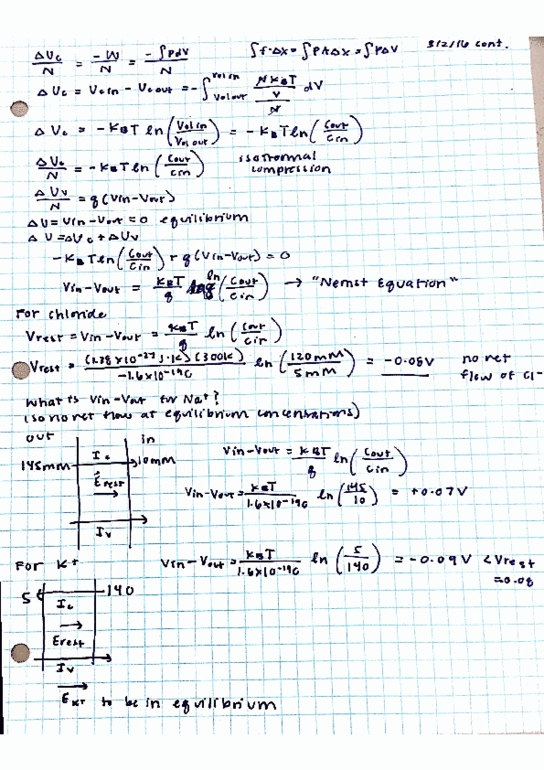 3/2/16 cont.
ΔUc/N = -W/N = -∫PdV/N   ∫f·Δx = ∫PAΔx = ∫PΔV
ΔUc = Uc in - Uc out = -∫ Vol out Vol in (NKBT/V)/N dV
ΔUc = -KBT ln(Vol in/Vol out) = -KBT ln(Cout/Cin)
ΔUc/N = -KBT ln(Cout/Cin)   isothermal compression
ΔUv/N = q(Vin-Vout)
ΔU = Uin - Uout = 0 equilibrium
ΔU = ΔUc + ΔUv
-KBT ln(Cout/Cin) + q(Vin-Vout) = 0
Vin-Vout = KBT/q ln(Cout/Cin) → "Nernst Equation"
For chloride
Vrest = Vin-Vout = KBT/q ln(Cout/Cin)
Vrest = (1.38×10^-23 J·K)(300K)/-1.6×10^-19C ln(120mM/5mM) = -0.08V   no net flow of Cl-
What is Vin-Vout for Na+?
(so no net flow at equilibrium concentrations)
out   in
145mM   Ic   10mM   Vin-Vout = KBT/q ln(Cout/Cin)
Erest   Vin-Vout = KBT/1.6×10^-19C ln(145/10) = +0.07V
Iv
For K+   Vin-Vout = KBT/1.6×10^-19C ln(5/140) = -0.09V < Vrest
=0.08
5   Ic   140
Erest
Iv
EK+ to be in equilibrium